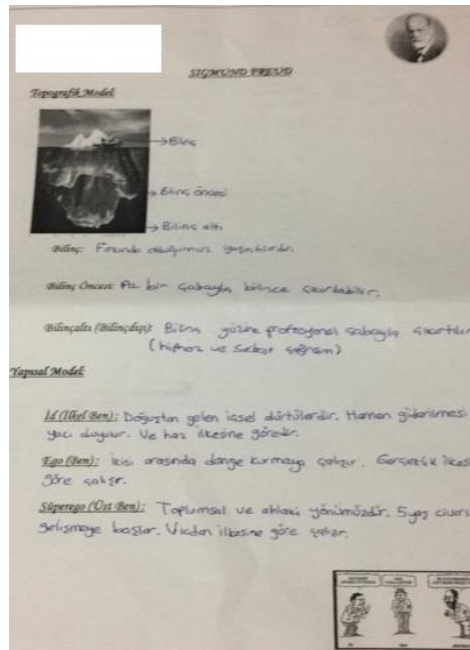 SIGMUND FREUD
Topografik Model:
→ Bilinç
→ Bilinç öncesi
→ Bilinç altı
Bilinç: Farkında olduğumuz yaşantılardır.
Bilinç Öncesi: Az bir çabayla bilince çıkartılabilir.
Bilinçaltı (Bilinçdışı): Bilinç yüzüne profesyonel çabayla çıkartılır
(hipnoz ve serbest çağrışım)
Yapısal Model:
İd (İlkel Ben): Doğuştan gelen içsel dürtülerdir. Hemen giderilmesi
duyulur. Ve haz ilkesine göredir.
Ego (Ben): İkisi arasında denge kurmaya çalışır. Gerçeklik ilkesi
göre çalışır.
Süperego (Üst Ben): Toplumsal ve ahlaki yönümüzdür. 5 yaş civarı
gelişmeye başlar. Vicdan ilkesine göre çalışır.